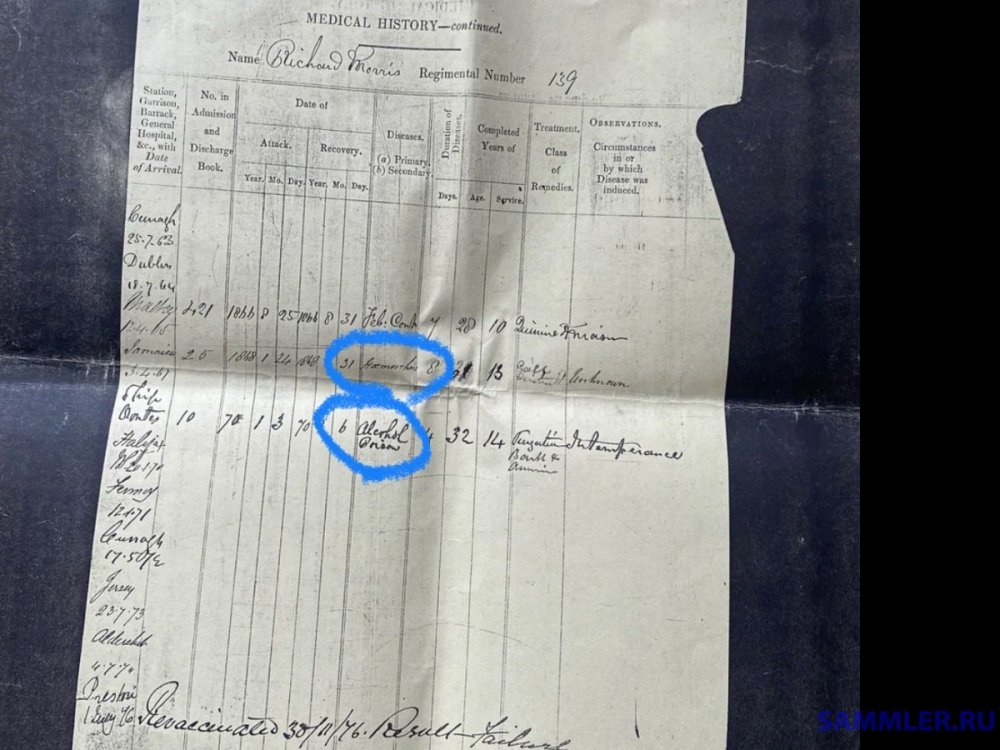 MEDICAL HISTORY—continued.
Name Richard Morris Regimental Number 139
Station, Garrison, Barrack, General Hospital, &c., with Date of Arrival.
No. in Admission and Discharge Book.
Date of
Attack. Recovery.
Year. Mo. Day. Year. Mo. Day.
Diseases. (a) Primary. (b) Secondary.
Duration of Diseases.
Days.
Completed Years of
Age. Service.
Treatment. Class of Remedies.
OBSERVATIONS.
Circumstances in or by which Disease was induced.
Curragh
25.7.63
Dublin
18.7.64
421 1866 8 25 1866 8 31 Feb. 7 28 10 Quinine
Jamaica 25 1868 1 24 1868 31 8 13 Unknown
3.4.67
Ship
10 70 1 3 70 6 Alcohol 4 32 14 Intemperance
Poison
Halifax
Fermoy
Curragh
Jersey
23.7.73
Aldershot
4.7.74
Preston
Revaccinated 30/11/76. Result Failure
SAMMLER.RU